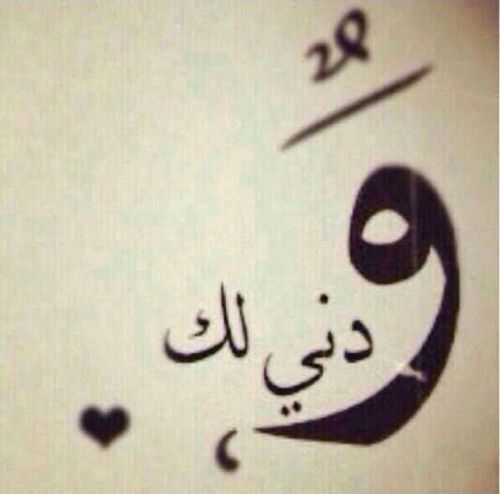 وَدني لك ، ♥